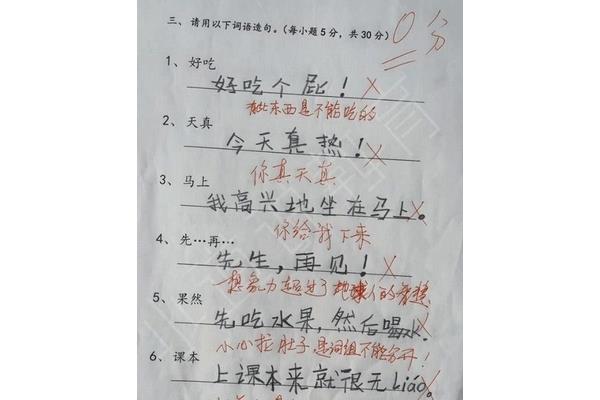 三、请用以下词语造句。(每小题5分,共30分)
0分
1、好吃
好吃个屁!
有些东西是不能吃的
2、天真
今天真热!
你真天真
3、马上
我高兴地坐在马上。
你给我下来
4、先…再…
先生,再见!
想象力超过了地球人的智慧
5、果然
先吃水果,然后喝水.
小心拉肚子,是词组不能分开!
6、课本
上课本来就很无liáo。